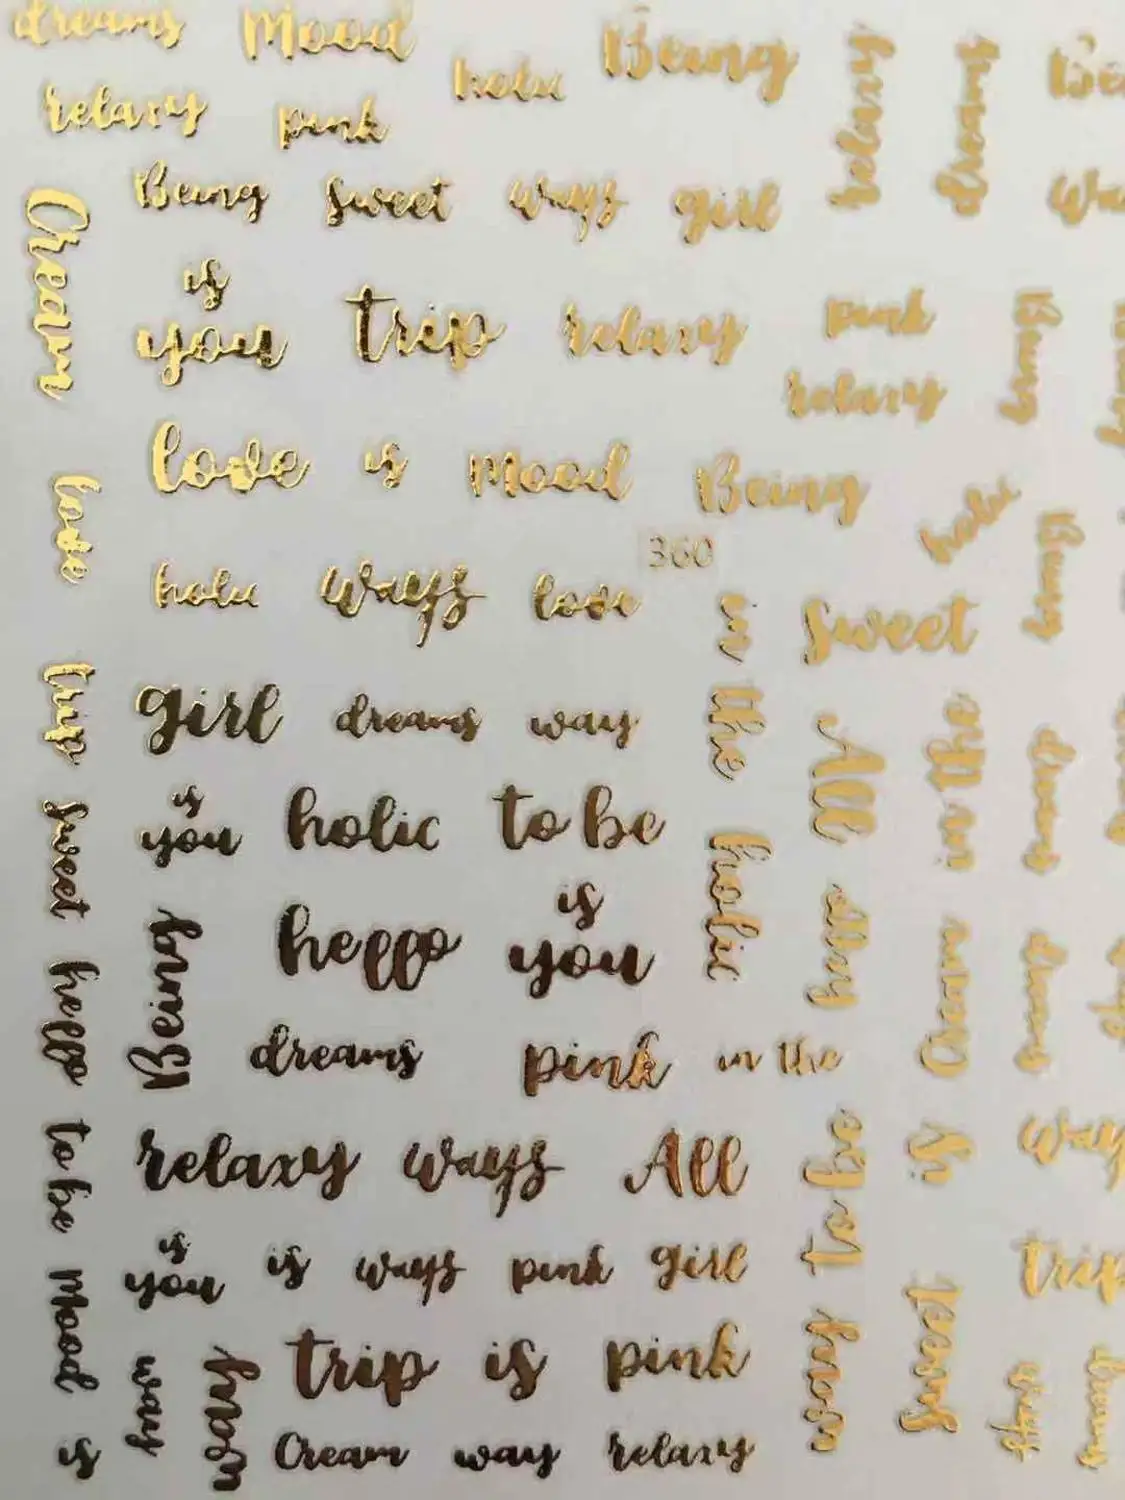 dreams Mood
holic Being
relaxy pink
relaxy
dreams
Being Sweet ways girl
Cream
is
you trip relaxy pink
relaxy
Being
love is Mood Being
love
holic
Being
360
holic ways love
in the
Sweet
trip
girl dreams way
All
in the
dreams
is
you holic to be
Sweet
holic
is
hello you
Being
Cream
dreams
hello
dreams pink in the
to be
relaxy ways All
to be
is
ways
is
you is ways pink girl
trip
Mood
trip is pink
way
Sweet
ways
is
Cream way relaxy